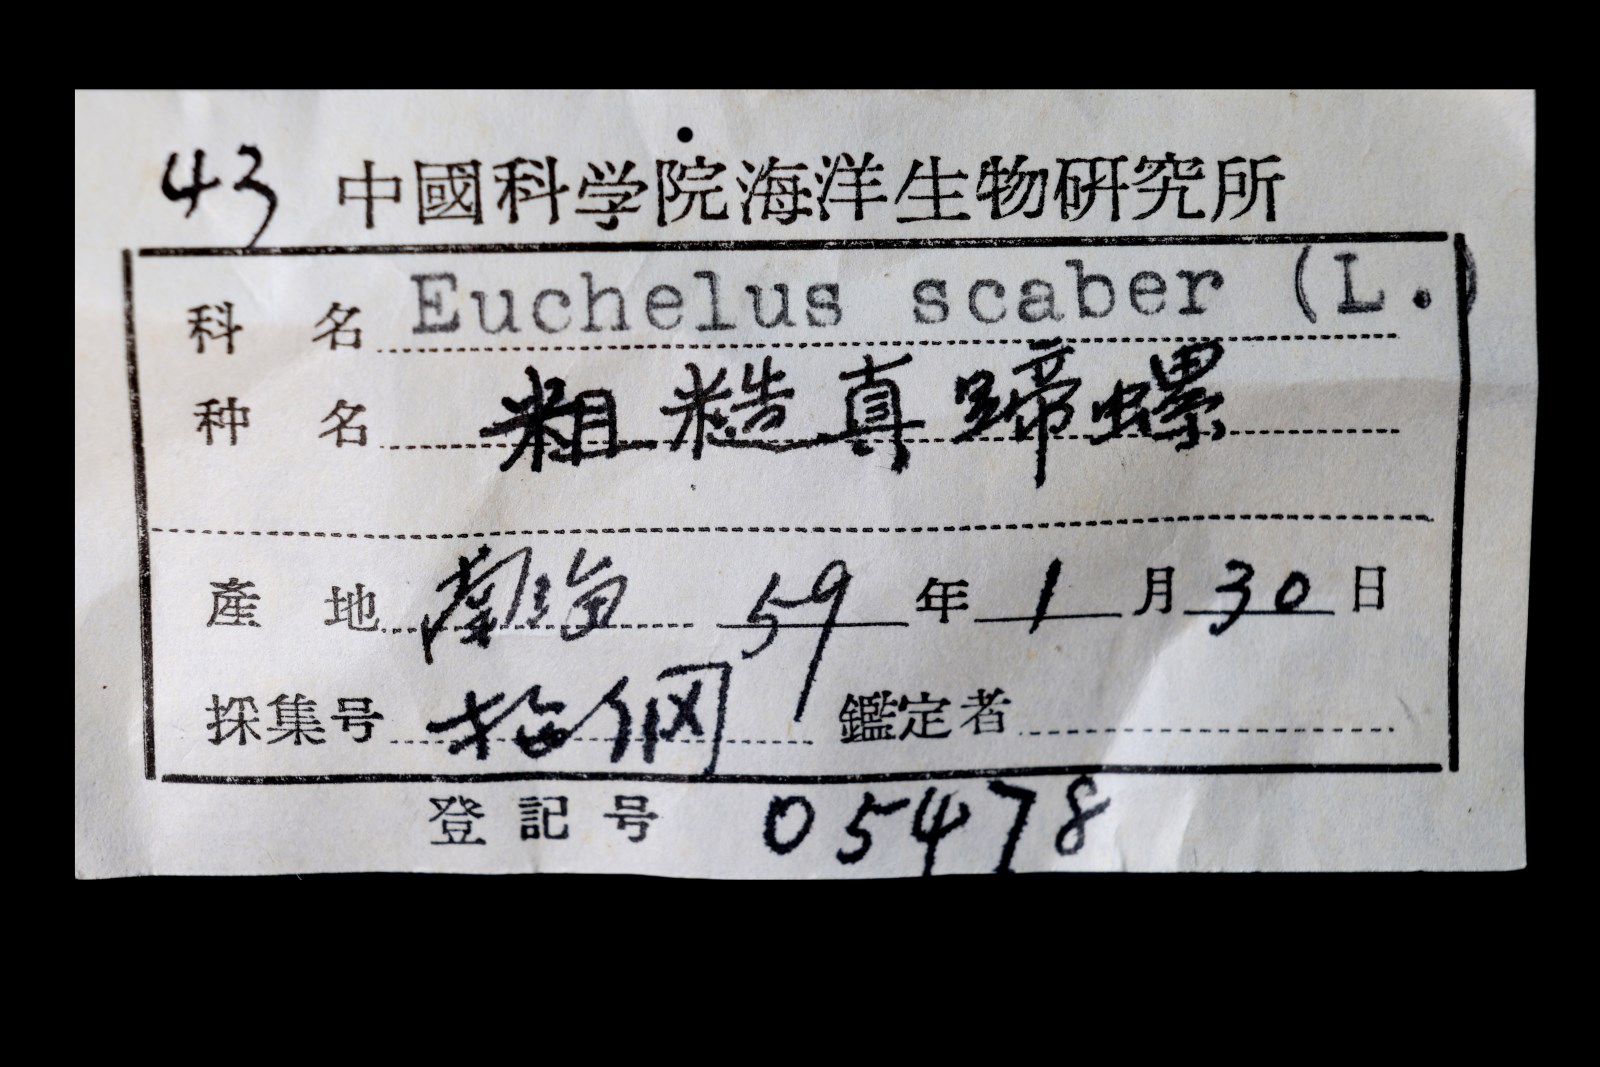 43 中國科学院海洋生物研究所
科 名 Euchelus scaber (L.)
种 名 粗糙真蹄螺
產 地 南海 59 年 1 月 30 日
採集号 拖网 鑑定者
登記号 05478